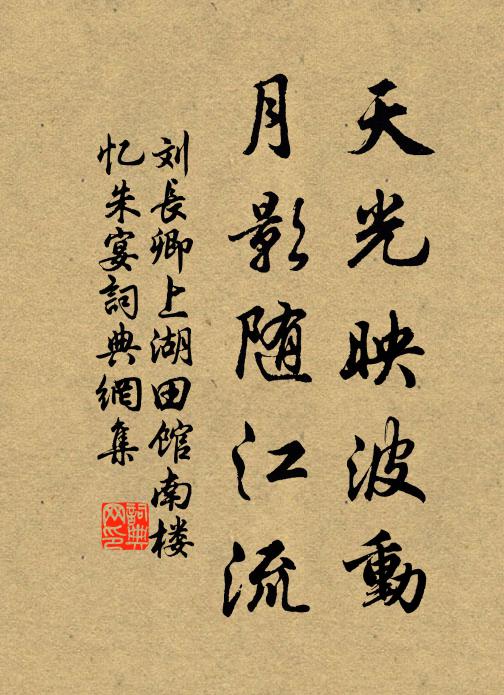 天光映波動
月影随江流
刘長卿上湖田馆南楼
忆朱宴詞典網集
詞典
网印